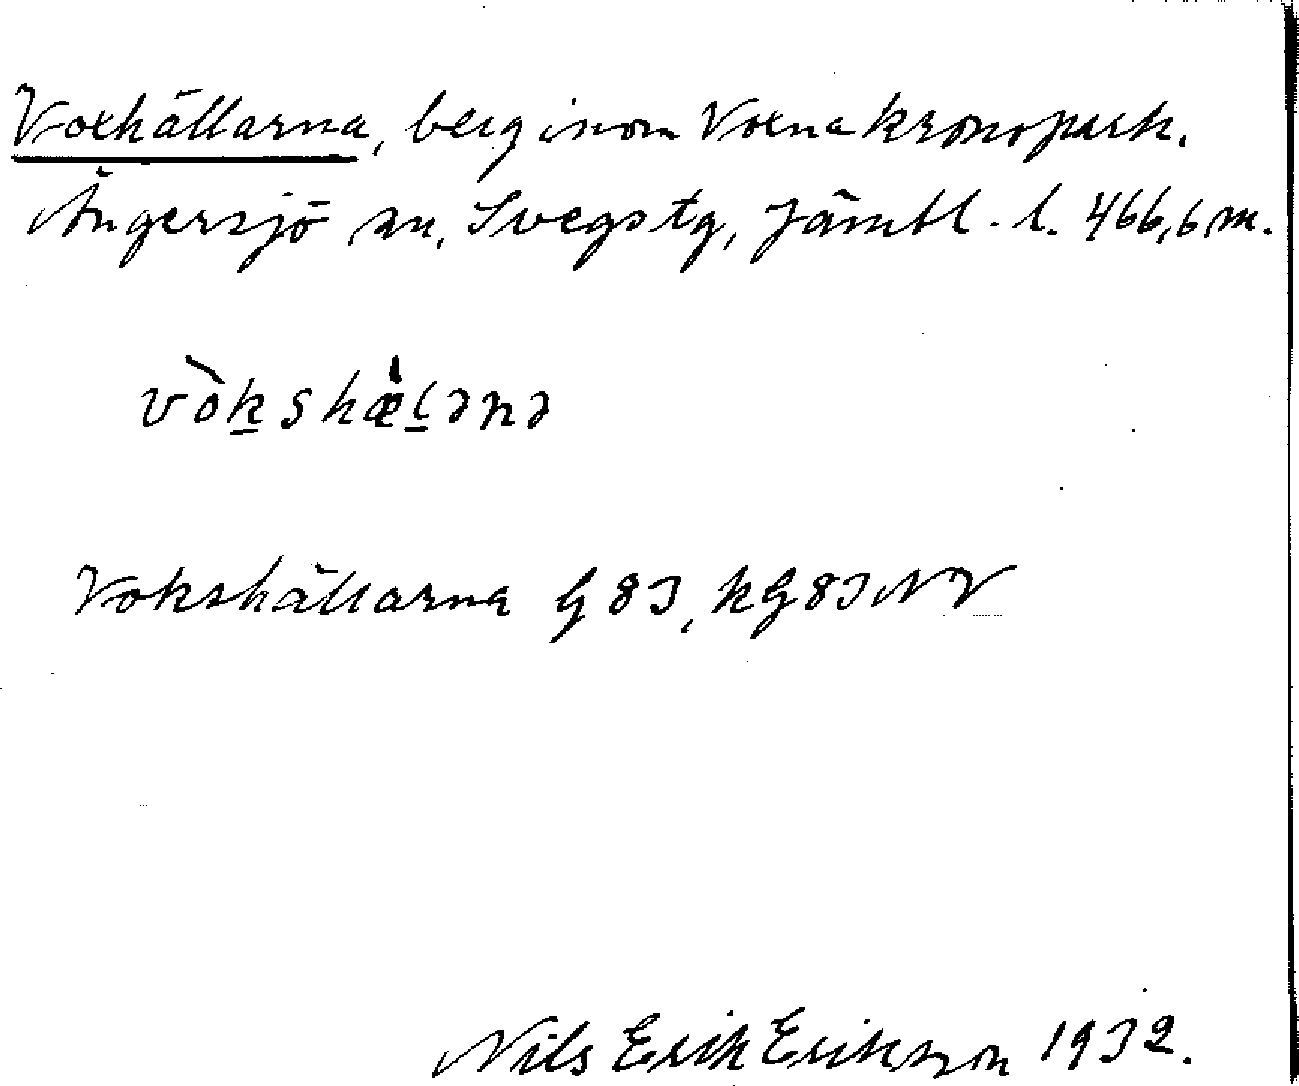 Voxhällarna, berg inom Voxna kronopark.
Ängersjö sn, Svegs tg, Jämtl. l. 466,6 m.
vòkshæ̀lənə
Vokshällarna G 83, kG 83 NV
Nils Erik Erikson 1932.